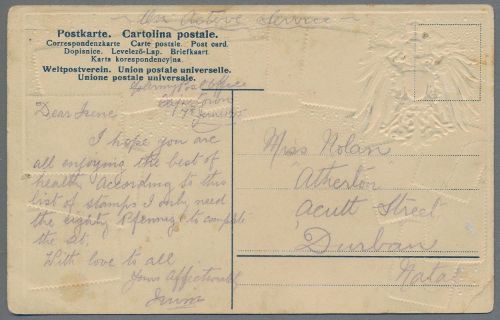 On Active Service
Postkarte. Cartolina postale.
Correspondenzkarte Carte postale. Post card.
Dopisnice. Levelező-Lap. Briefkaart.
Karta korespondencyjna.
Weltpostverein. Union postale universelle.
Unione postale universale.
Army Post Office
Cape Town
7th June 1915
Dear Irene
I hope you are
all enjoying the best of
health. According to this
list of stamps I only need
the eighty Pfennig to complete
the set.
With love to all
Yours Affectionately
Miss Nolan
"Atherton"
Acutt Street
Durban
Natal